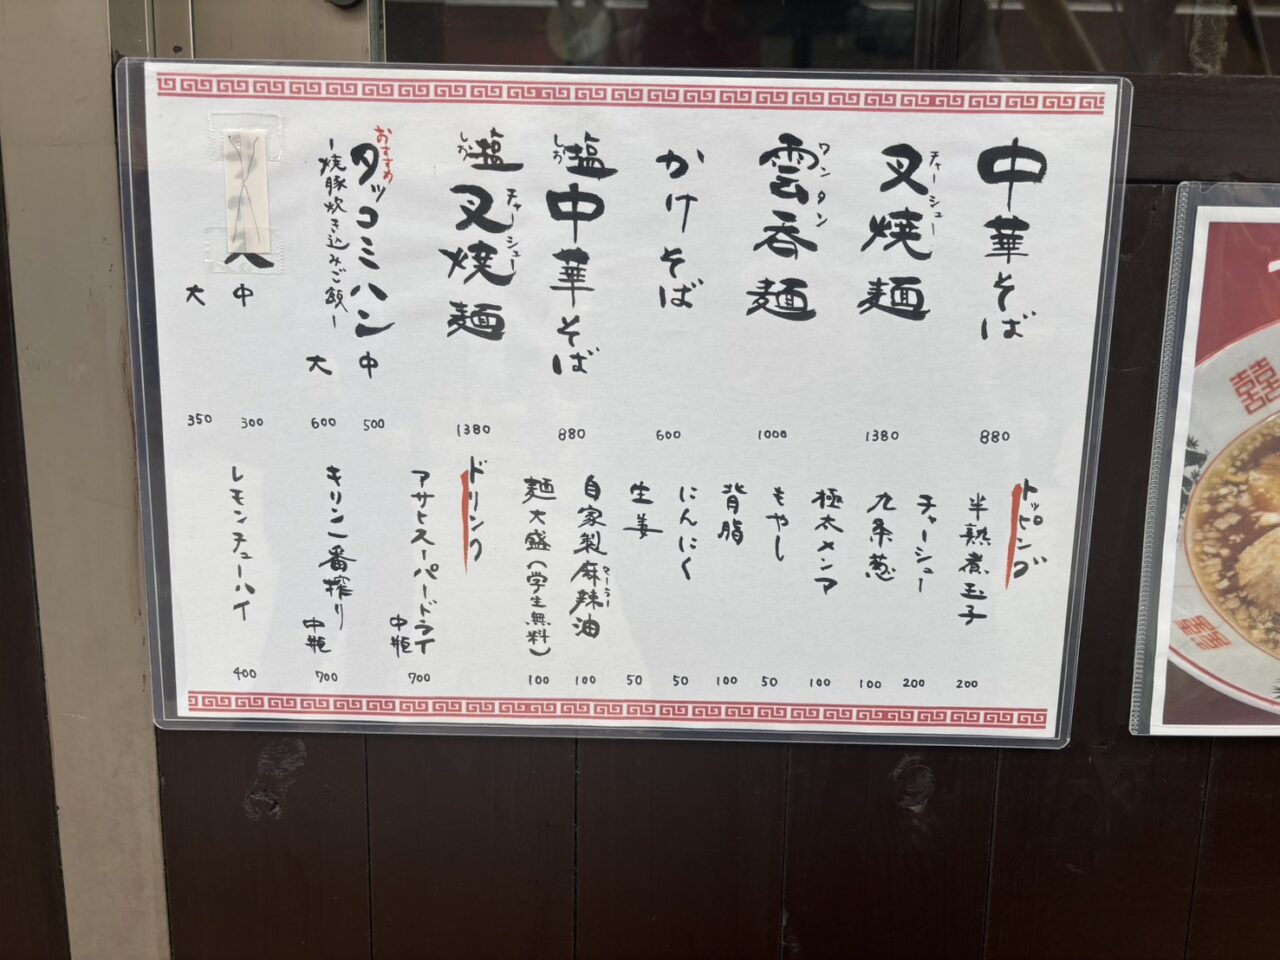 中華そば 880
叉焼麺 チャーシュー 1380
雲呑麺 ワンタン 1000
かけそば 600
塩中華そば しお 880
塩叉焼麺 しお チャーシュー 1380
おすすめ
タッコミハン 中 500
-焼豚炊き込みご飯- 大 600
中 300
大 350
トッピング
半熟煮玉子 200
チャーシュー 200
九条葱 100
極太メンマ 100
もやし 50
背脂 100
にんにく 50
生姜 50
自家製麻辣油 マーラー 100
麺大盛(学生無料) 100
ドリンク
アサヒスーパードライ 中瓶 700
キリン一番搾り 中瓶 700
レモンチューハイ 400
囍
囍